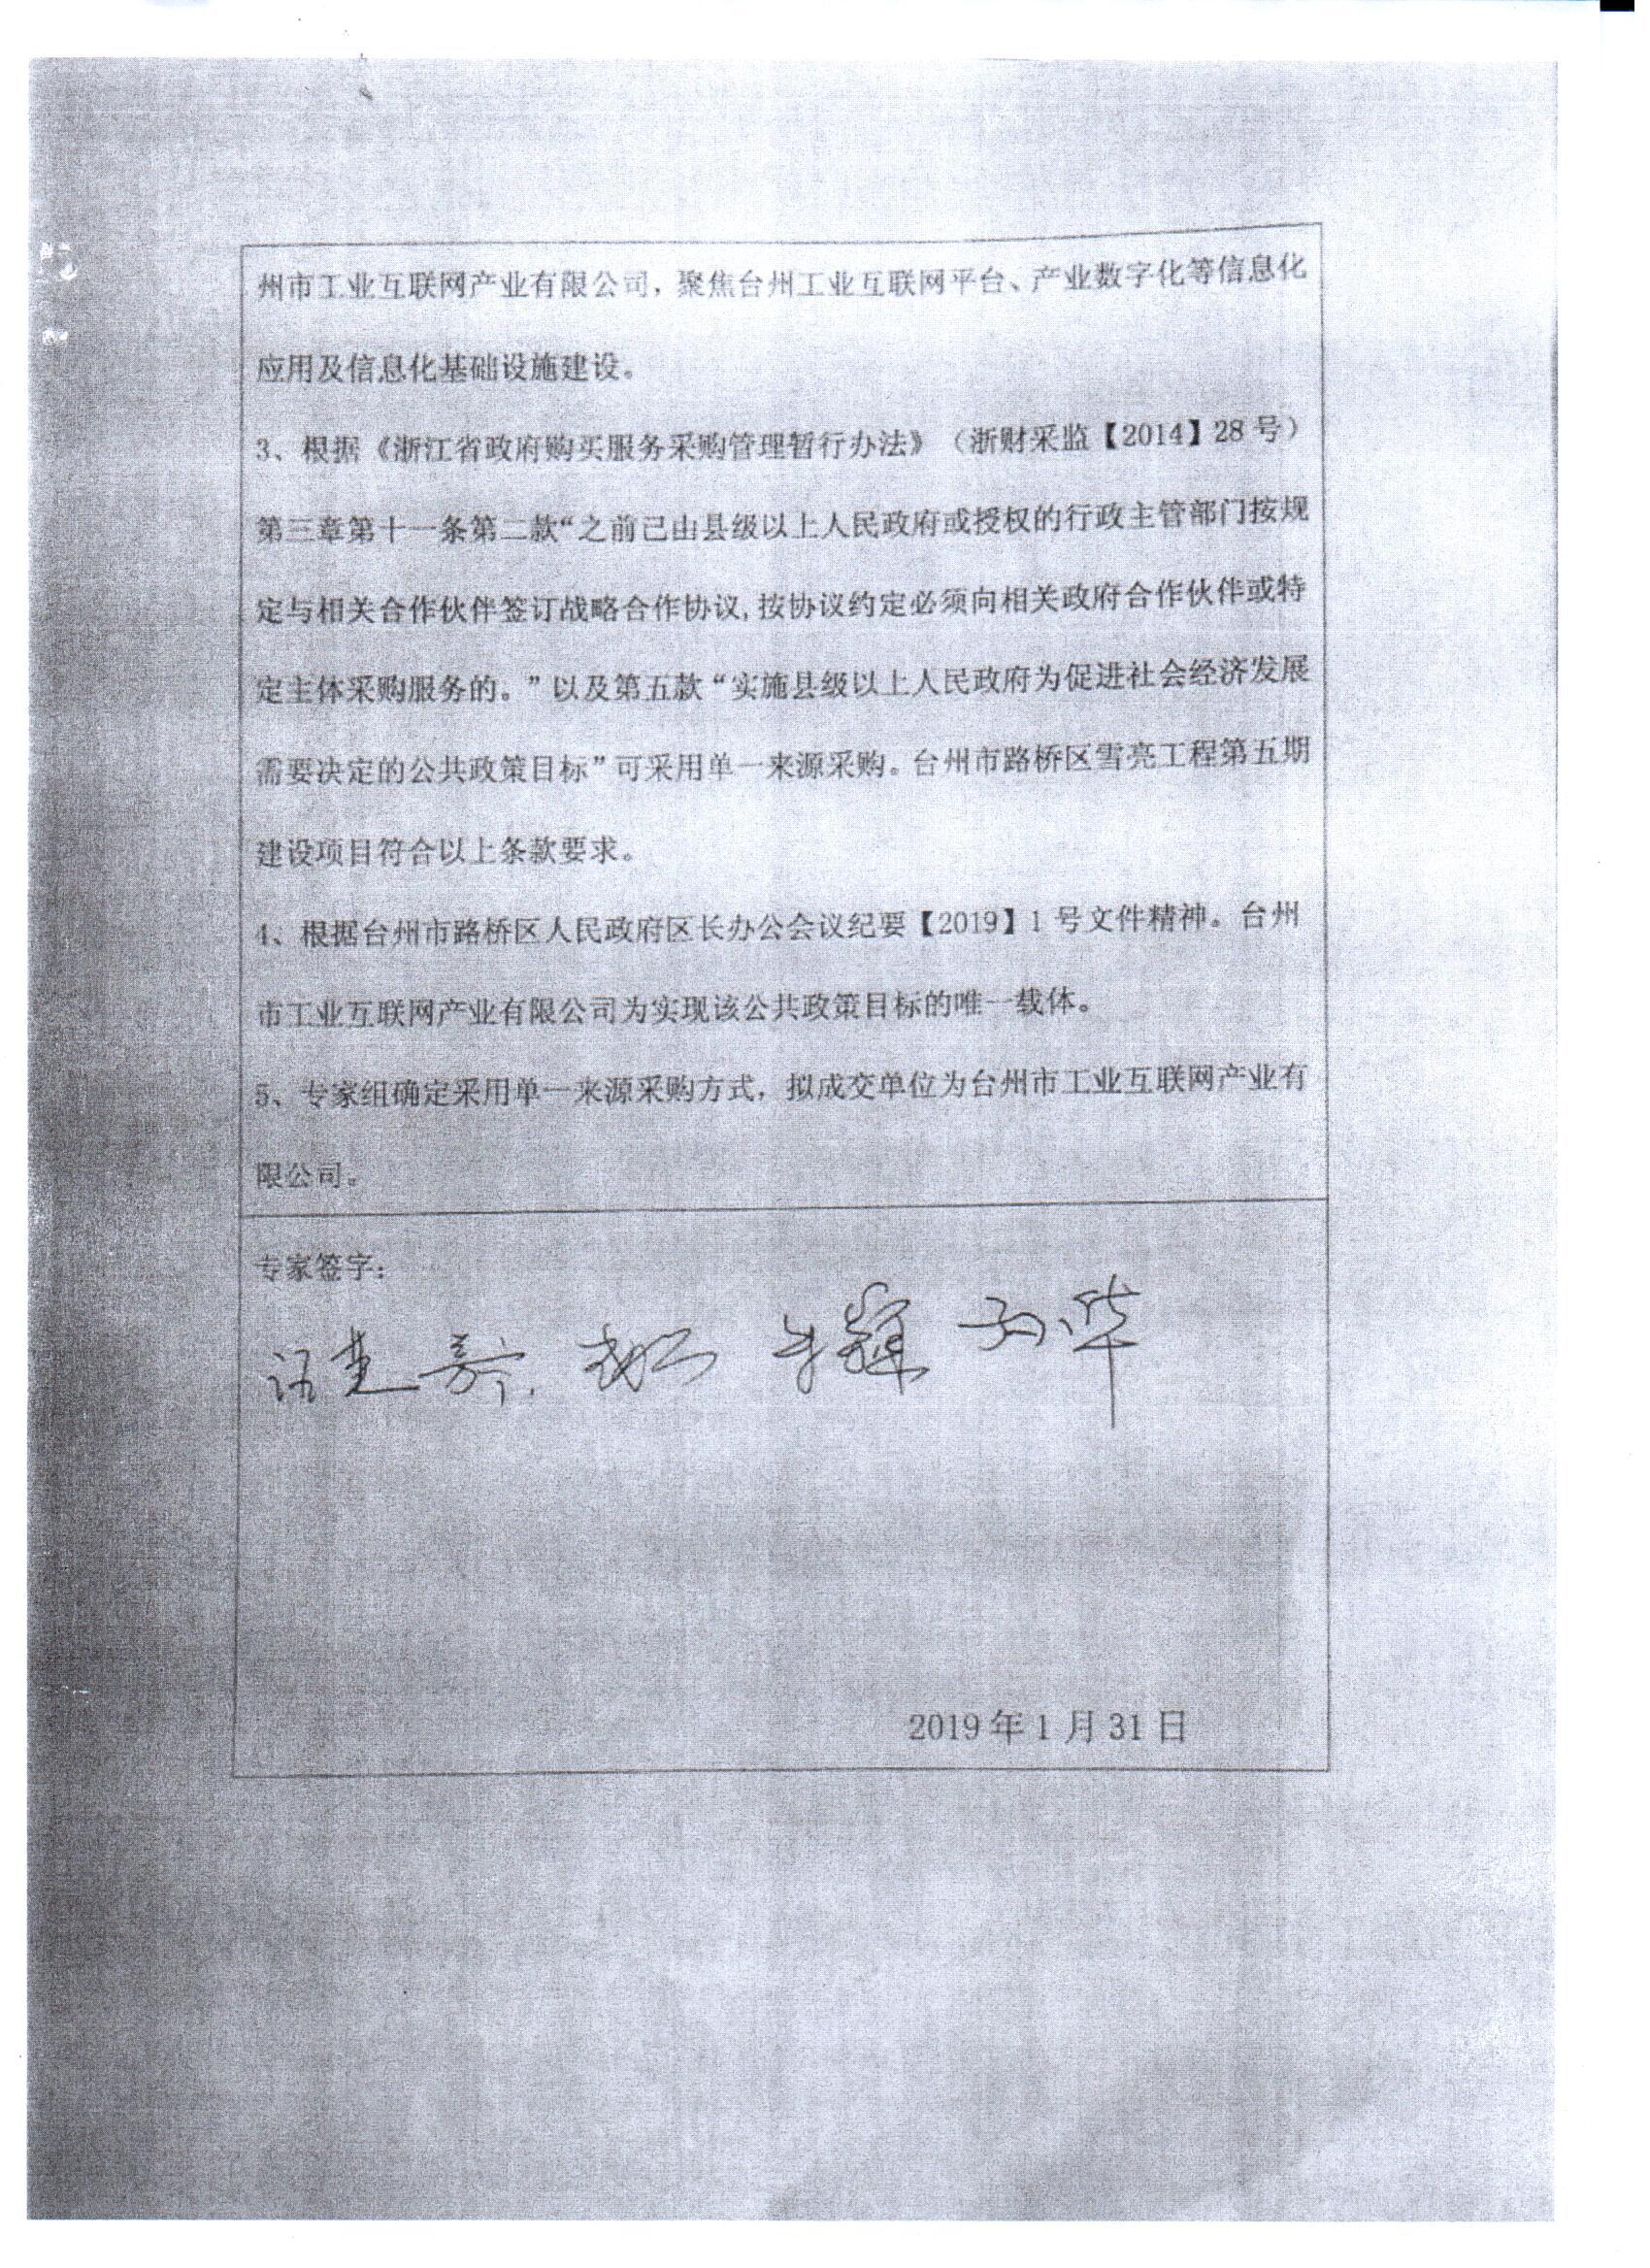 州市工业互联网产业有限公司，聚焦台州工业互联网平台、产业数字化等信息化
应用及信息化基础设施建设。
3、根据《浙江省政府购买服务采购管理暂行办法》（浙财采监【2014】28号）
第三章第十一条第二款“之前已由县级以上人民政府或授权的行政主管部门按规
定与相关合作伙伴签订战略合作协议,按协议约定必须向相关政府合作伙伴或特
定主体采购服务的。”以及第五款“实施县级以上人民政府为促进社会经济发展
需要决定的公共政策目标”可采用单一来源采购。台州市路桥区雪亮工程第五期
建设项目符合以上条款要求。
4、根据台州市路桥区人民政府区长办公会议纪要【2019】1号文件精神。台州
市工业互联网产业有限公司为实现该公共政策目标的唯一载体。
5、专家组确定采用单一来源采购方式，拟成交单位为台州市工业互联网产业有
限公司。
专家签字：
2019年1月31日